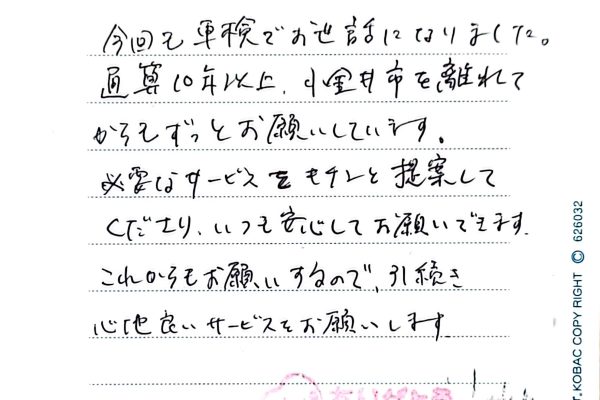 今回も車検でお世話になりました。
通算10年以上、小金井市を離れて
からもずっとお願いしています。
必要なサービスをキチンと提案して
くださり、いつも安心してお願いできます。
これからもお願いするので、引続き
心地良いサービスをお願いします
T. KOBAC COPY RIGHT © 626032